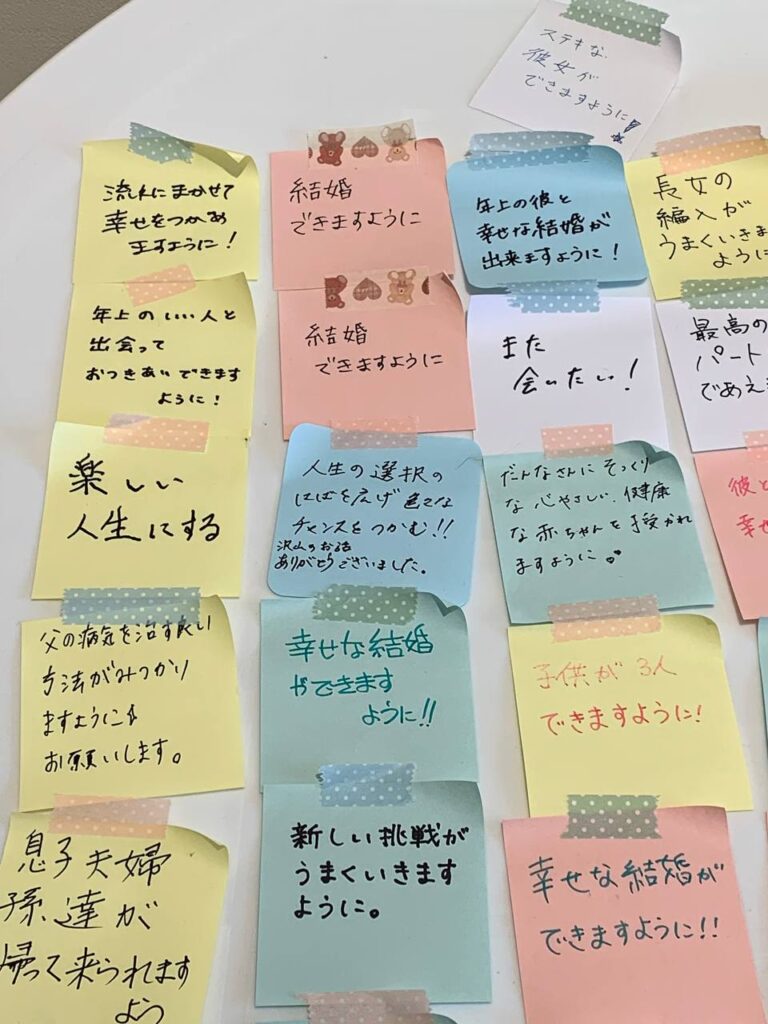 ステキな
彼女が
できますように!
流れにまかせて
幸せをつかめ
ますように!
結婚
できますように
年上の彼と
幸せな結婚が
出来ますように!
長女の
編入が
うまくいきま
ように
年上のいい人と
出会って
おつきあいできます
ように!
結婚
できますように
また
会いたい!
最高の
パート
であえ
楽しい
人生にする
人生の選択の
はばを広げ色々な
チャンスをつかむ!!
沢山のお話
ありがとうございました。
だんなさんにそっくり
な心やさしい、健康
な赤ちゃんを授かれ
ますように
彼と
幸せ
父の病気を治す良い
方法がみつかり
ますように
お願いします。
幸せな結婚
ができます
ように!!
子供が3人
できますように!
息子夫婦
孫達が
帰って来られます
よう
新しい挑戦が
うまくいきます
ように。
幸せな結婚が
できますように!!